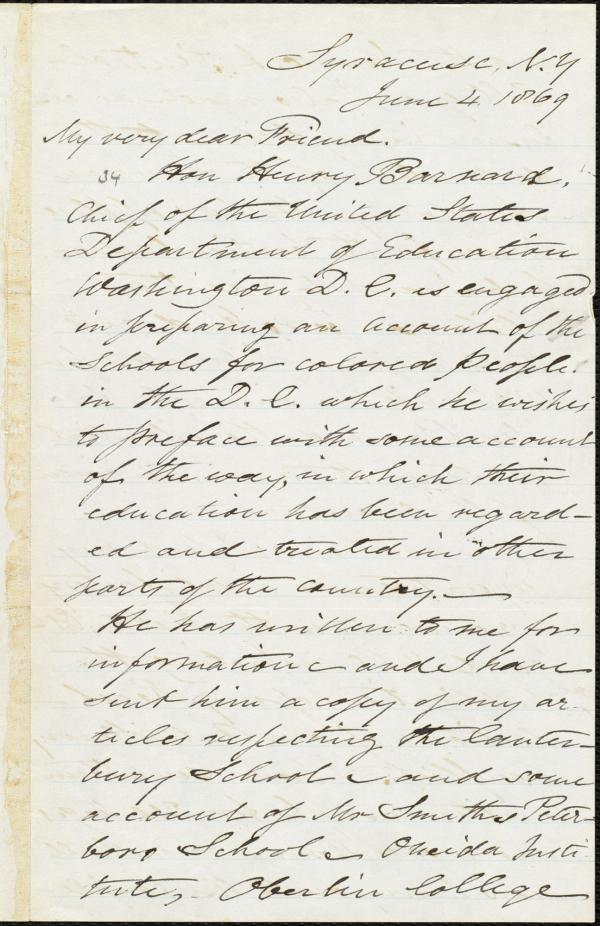 Syracuse, N.Y
June 4 1869
My very dear Friend.
34 Hon Henry Barnard,
Chief of the United States
Department of Education
Washington D. C. is engaged
in preparing an account of the
Schools for colored people
in the D. C. which he wishes
to preface with some account
of the way, in which their
education has been regard-
ed and treated in other
parts of the country.—
He has written to me for
information — and I have
sent him a copy of my ar-
ticles respecting the Canter-
bury School — and some
account of Mr Smith's Peter-
boro School — Oneida Insti-
tute, — Oberlin College